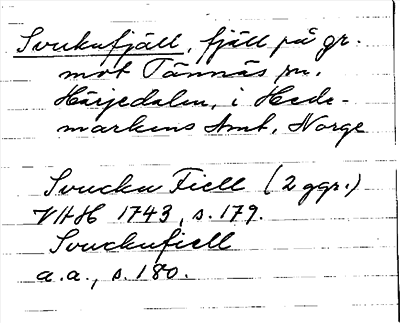 Svukufjäll, fjäll på gr.
mot Tännäs sn.
Härjedalen, i Hede-
markens Amt, Norge
Svucku Fiell (2 ggr.)
VHH 1743, s. 179.
Svuckufiell
a.a., s. 180.